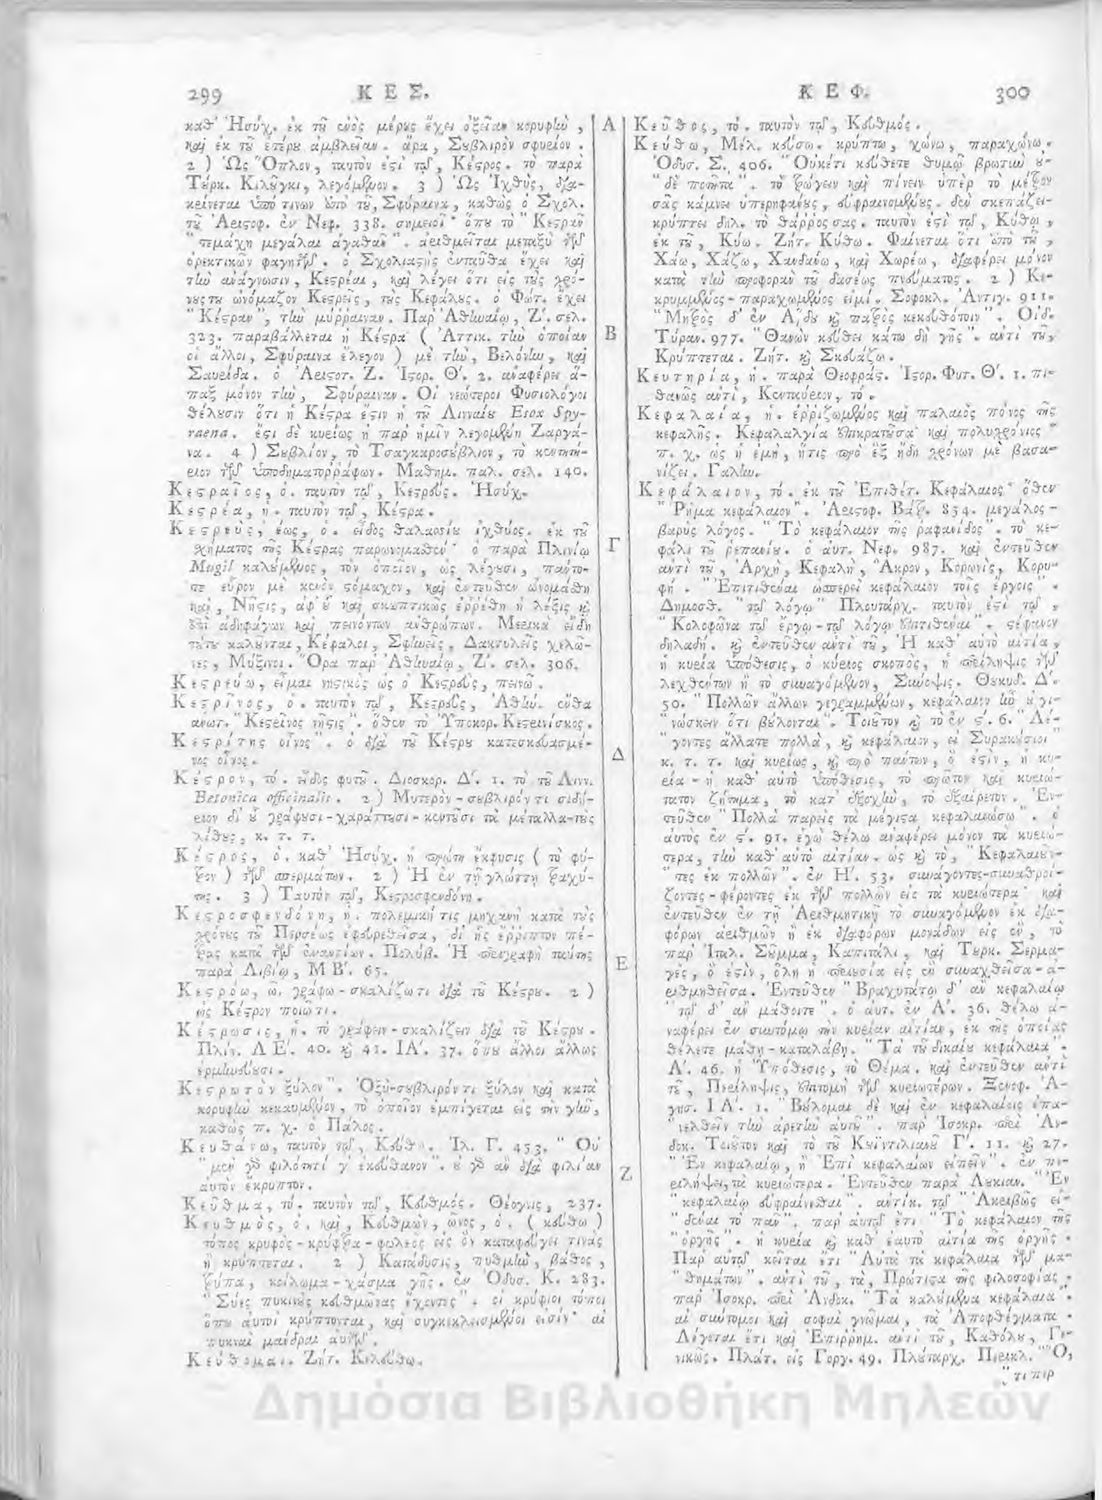 299 ΚΕΣ.
καθ' Ἡσύχ. ἐκ τοῦ ἑνὸς μέρους ἔχει ὀξεῖαν κορυφὴν,
καὶ ἐκ τοῦ ἑτέρου ἀμβλεῖαν. ἄρα, Σουβλιρὸν σφυρίον.
2) Ὡς Ὅπλον, ταυτὸν ἐστὶ τῷ, Κέστρος. τὸ παρὰ
Τούρκ. Κιλούγκι, λεγόμενον. 3) Ὡς Ἰχθὺς, δια-
κρίνεται ὑπό τινων ἀπὸ τοῦ, Σφύραινα, καθὼς ὁ Σχολ.
τοῦ Ἀριστοφ. ἐν Νεφ. 338. σημειοῖ· ὅπου τὸ "Κεστρᾶν
"τεμάχη μεγάλαι ἀγαθᾶν". ἀριθμεῖται μεταξὺ τῶν
ὀρεκτικῶν φαγητῶν. ὁ Σχολιαστὴς ἐνταῦθα ἔχει καὶ
τὴν ἀνάγνωσιν, Κεστρέαι, καὶ λέγει ὅτι εἰς τοὺς χρό-
νους του ὠνόμαζον Κεστρεῖς, τοὺς Κεφάλους. ὁ Φώτ. ἔχει
"Κέστραν", τὴν μύρραιναν. Παρ' Ἀθηναίῳ, Ζ'. σελ.
323. παραβάλλεται ἡ Κέστρα (Ἀττικ. τὴν ὁποίαν
οἱ ἄλλοι, Σφύραινα ἔλεγον) μὲ τὴν, Βελόνην, καὶ
Σαυρίδα. ὁ Ἀριστοτ. Ζ. Ἱστορ. Θ'. 2. ἀναφέρει ἅ-
παξ μόνον τὴν, Σφύραιναν. Οἱ νεώτεροι Φυσιολόγοι
θέλουσιν ὅτι ἡ Κέστρα ἐστὶν ἡ τοῦ Λινναίου Esox Spy-
raena. ἔστι δὲ κυρίως ἡ παρ' ἡμῖν λεγομένη Ζαργά-
να. 4) Σουβλίον, τὸ Τσαγκαροσούβλιον, τὸ κεντητή-
ριον τῶν ὑποδηματορράφων. Μαθημ. παλ. σελ. 140.
Κεστραῖος, ὁ. ταυτὸν τῷ, Κεστρεύς. Ἡσύχ.
Κεστρέα, ἡ. ταυτὸν τῷ, Κέστρα.
Κεστρεὺς, έως, ὁ. εἶδος θαλασσίου ἰχθύος. ἐκ τοῦ
σχήματος τῆς Κέστρας παρωνομασθέν· ὁ παρὰ Πλινίῳ
Mugil καλούμενος, τὸν ὁποῖον, ὡς λέγουσι, πάντο-
τε εὗρον μὲ κενὸν στόμαχον, καὶ ἐντεῦθεν ὠνομάσθη
καὶ, Νῆστις, ἀφ' οὗ καὶ σκωπτικῶς ἐρρέθη ἡ λέξις καὶ
ἐπὶ ἀδηφάγων καὶ πεινόντων ἀνθρώπων. Μερικὰ εἴδη
τούτου καλοῦνται, Κέφαλοι, Σφηνεῖς, Δακτυλεῖς χελῶ-
νες, Μυξῖνοι. Ὅρα παρ' Ἀθηναίῳ, Ζ'. σελ. 306.
Κεστρεύω, εἶμαι νηστικὸς ὡς ὁ Κεστρεὺς, πεινῶ.
Κεστρῖνος, ὁ. ταυτὸν τῷ, Κεστρεύς, Ἀθήν. ἔνθα
ἀνωτ. "Κεστρῖνος νῆστις". ὅθεν τὸ Ὑποκορ. Κεστρινίσκος.
Κεστρίτης οἶνος". ὁ διὰ τοῦ Κέστρου κατεσκευασμέ-
νος οἶνος.
Κέστρον, τό. εἶδος φυτοῦ. Διοσκορ. Δ'. 1. τὸ τοῦ Λινν.
Betonica officinalis. 2) Μυτερὸν-σουβλιρόν τι σιδή-
ριον δι' οὗ γράφουσι-χαράττουσι-κεντοῦσι τὰ μέταλλα-τοὺς
λίθους, κ. τ. τ.
Κέστρος, ὁ. καθ' Ἡσύχ. ἡ πρώτη ἔκφυσις (τὸ φύ-
τρον) τῶν σπερμάτων. 2) Ἡ ἐν τῇ γλώττῃ τραχύ-
της. 3) Ταυτὸν τῷ, Κεστροσφενδόνη.
Κεστροσφενδόνη, ἡ. πολεμική τις μηχανὴ κατὰ τοὺς
χρόνους τοῦ Περσέως ἐφευρεθεῖσα, δι' ἧς ἔρριπτον πέ-
τρας κατὰ τῶν ἐναντίων. Πολύβ. Ἡ περιγραφὴ ταύτης
παρὰ Λιβίῳ, ΜΒ'. 65.
Κεστρόω, ῶ. γράφω-σκαλίζω τι διὰ τοῦ Κέστρου. 2)
ὡς Κέστρον ποιῶ τι.
Κέστρωσις, ἡ. τὸ γράφειν-σκαλίζειν διὰ τοῦ Κέστρου.
Πλίν. ΛΕ'. 40. καὶ 41. ΙΑ'. 37. ὅπου ἄλλοι ἄλλως
ἑρμηνεύουσι.
Κεστρωτὸν ξύλον". Ὀξύ-σουβλιρόν τι ξύλον καὶ κατὰ
κορυφὴν κεκαυμένον, τὸ ὁποῖον ἐμπίγεται εἰς τὴν γῆν,
καθὼς π. χ. ὁ Πάλος.
Κευθάνω, ταυτὸν τῷ, Κεύθω. Ἰλ. Γ. 453. "Οὐ
"μὲν γὰρ φιλότητί γ' ἐκεύθανον". οὐ γὰρ ἂν διὰ φιλίαν
αὐτὸν ἔκρυπτον.
Κεῦθμα, τό. ταυτὸν τῷ, Κευθμός. Θέογνις, 237.
Κευθμὸς, ὁ. καὶ, Κευθμὼν, ῶνος, ὁ. (κεύθω)
τόπος κρυφὸς-κρύφτρα-φωλεὸς εἰς ὃν καταφεύγει τινας
ἢ κρύπτεται. 2) Κατάδυσις, πυθμὴν, βάθος,
τρύπα, κοίλωμα-χάσμα γῆς. ἐν Ὀδυσ. Κ. 283.
"Σύες πυκινοὺς κευθμῶνας ἔχοντες". οἱ κρύφιοι τόποι
ὅπου αὐτοὶ κρύπτονται, καὶ συγκεκλεισμένοι εἰσίν· αἱ
πυκναὶ μάνδραι αὐτῶν.
Κεύθομαι. Ζήτ. Κικλεύθω.
Α
Β
Γ
Δ
Ε
Ζ
ΚΕΦ. 300
Κεῦθος, τό. ταυτὸν τῷ, Κευθμός.
Κεύθω, Μέλ. κεύσω. κρύπτω, χώνω, παραχώνω.
Ὀδυσ. Σ. 406. "Οὐκέτι κεύθετε θυμῷ βρωτὺν οὐ-
"δὲ ποτῆτα". τὸ τρώγειν καὶ πίνειν ὑπὲρ τὸ μέτρον
σᾶς κάμνει ὑπερηφάνους, εὐφραινομένους. δὲν σκεπάζει-
κρύπτει δηλ. τὸ θάρρος σας. ταυτὸν ἐστὶ τῷ, Κύθω,
ἐκ τοῦ, Κύω. Ζήτ. Κύθω. Φαίνεται ὅτι ἀπὸ τοῦ,
Χάω, Χάζω, Χανδάνω, καὶ Χωρέω, διαφέρει μόνον
κατὰ τὴν προφορὰν τοῦ δασέως πνεύματος. 2) Κε-
κρυμμένος-παραχωμένος εἰμί. Σοφοκλ. Ἀντιγ. 911.
"Μητρὸς δ' ἐν Ἅιδου καὶ πατρὸς κεκευθότοιν". Οἰδ.
Τύραν. 977. "Θανὼν κεύθει κάτω δὴ γῆς". ἀντὶ τοῦ,
Κρύπτεται. Ζήτ. καὶ Σκευάζω.
Κευτηρία, ἡ. παρὰ Θεοφράστ. Ἱστορ. Φυτ. Θ'. 1. πι-
θανῶς ἀντὶ, Κενταύριον, τό.
Κεφαλαία, ἡ. ἐρριζωμένος καὶ παλαιὸς πόνος τῆς
κεφαλῆς. Κεφαλαλγία ἐπικρατοῦσα καὶ πολυχρόνιος·
π. χ. ὡς ἡ ἐμὴ, ἥτις πρὸ ἓξ ἤδη χρόνων μὲ βασα-
νίζει. Γαλήν.
Κεφάλαιον, τό. ἐκ τοῦ Ἐπιθέτ. Κεφάλαιος· ὅθεν
"Ῥῆμα κεφάλαιον". Ἀριστοφ. Βάτρ. 854. μεγάλος-
βαρὺς λόγος. "Τὸ κεφάλαιον τῆς ῥαφανῖδος". τὸ κε-
φάλι τοῦ ρεπανίου. ὁ αὐτ. Νεφ. 987. καὶ ἐντεῦθεν
ἀντὶ τοῦ, Ἀρχὴ, Κεφαλὴ, Ἄκρον, Κορωνὶς, Κορυ-
φή. "Ἐπιτιθέναι ὡσπερεὶ κεφάλαιον τοῖς ἔργοις".
Δημοσθ. "τῷ λόγῳ" Πλουτάρχ. ταυτὸν ἐστὶ τῷ,
"Κολοφῶνα τῷ ἔργῳ-τῷ λόγῳ ἐπιτιθέναι". στέφανον
δηλαδή. καὶ ἐντεῦθεν ἀντὶ τοῦ, Ἡ καθ' αὑτὸ αἰτία,
ἡ κυρία ὑπόθεσις, ὁ κύριος σκοπὸς, ἡ περίληψις τῶν
λεχθέντων ἢ τὸ συναγόμενον, Σύνοψις. Θουκυδ. Δ'.
50. "Πολλῶν ἄλλων γεγραμμένων, κεφάλαιον ἦν οὐ γι-
"νώσκειν ὅτι βούλονται". Τοιοῦτον καὶ τὸ ἐν ϛ'. 6. "Λέ-
"γοντες ἄλλα τε πολλὰ, καὶ κεφάλαιον, εἰ Συρακούσιοι"
κ. τ. τ. καὶ κυρίως, καὶ πρὸ πάντων, ὅ ἐστιν, ἡ κυ-
ρία-ἡ καθ' αὑτὸ ὑπόθεσις, τὸ πρῶτον καὶ κυριώ-
τατον ζήτημα, τὸ κατ' ἐξοχὴν, τὸ ἐξαίρετον. Ἐν-
τεῦθεν "Πολλὰ παρεὶς τὰ μέγιστα κεφαλαιώσω". ὁ
αὐτὸς ἐν ϛ'. 91. ἐγὼ θέλω ἀναφέρει μόνον τὰ κυριώ-
τερα, τὴν καθ' αὑτὸ αἰτίαν. ὡς καὶ τὸ, "Κεφαλαιοῦν-
"τες ἐκ πολλῶν". ἐν Η'. 53. συνάγοντες-συναθροί-
ζοντες-φέροντες ἐκ τῶν πολλῶν εἰς τὰ κυριώτερα· καὶ
ἐντεῦθεν ἐν τῇ Ἀριθμητικῇ τὸ συναγόμενον ἐκ δια-
φόρων ἀριθμῶν ἢ ἐκ διαφόρων μονάδων εἰς ἓν, τὸ
παρ' Ἰταλ. Σοῦμμα, Καπιτάλι, καὶ Τουρκ. Σερμα-
γὲς, ὅ ἐστιν, ὅλη ἡ περιουσία εἰς ἓν συναχθεῖσα-ἀ-
ριθμηθεῖσα. Ἐντεῦθεν "Βραχυτάτῳ δ' ἂν κεφαλαίῳ
"τῷ δ' ἂν μάθοιτε". ὁ αὐτ. ἐν Α'. 36. θέλω ἀ-
ναφέρει ἐν συντόμῳ τὴν κυρίαν αἰτίαν, ἐκ τῆς ὁποίας
θέλετε μάθῃ-καταλάβῃ. "Τὰ τοῦ δικαίου κεφάλαια".
Α'. 46. ἡ Ὑπόθεσις, τὸ Θέμα. καὶ ἐντεῦθεν ἀντὶ
τοῦ, Περίληψις, ἐπιτομὴ τῶν κυριωτέρων. Ξενοφ. Ἀ-
γησ. ΙΑ'. 1. "Βούλομαι δὲ καὶ ἐν κεφαλαίοις ἐπα-
"νελθεῖν τὴν ἀρετὴν αὐτοῦ". παρ' Ἰσοκρ. περὶ Ἀν-
δοκ. Τοιοῦτον καὶ τὸ τοῦ Κυϊντιλιανοῦ Γ'. 11. καὶ 27.
"Ἐν κεφαλαίῳ, ἢ Ἐπὶ κεφαλαίων εἰπεῖν". ἐν πε-
ριλήψει, τὰ κυριώτερα. Ἐντεῦθεν παρὰ Λουκιαν. "Ἐν
"κεφαλαίῳ εὐφραίνεσθαι". ἀντίκ. τῷ "Ἀκριβῶς εἰ-
"δέναι τὸ πᾶν". παρ' αὐτῷ ἔτι "Τὸ κεφάλαιον τῆς
"ὀργῆς". ἡ κυρία καὶ καθ' ἑαυτὸ αἰτία τῆς ὀργῆς.
Παρ' αὐτῷ κεῖται ἔτι "Αὐτὰ τὰ κεφάλαια τῶν μα-
"θημάτων". ἀντὶ τοῦ, τὰ, Πρώτιστα τῆς φιλοσοφίας.
παρ' Ἰσοκρ. περὶ Ἀνδοκ. "Τὰ καλούμενα κεφάλαια".
αἱ σύντομοι καὶ σοφαὶ γνῶμαι, τὰ Ἀποφθέγματα.
Λέγεται ἔτι καὶ Ἐπιρρημ. ἀντὶ τοῦ, Καθόλου, Γε-
νικῶς. Πλάτ. εἰς Γοργ. 49. Πλούταρχ. Περικλ. "Ὅ,
"τι περ
Δημόσια Βιβλιοθήκη Μηλεών